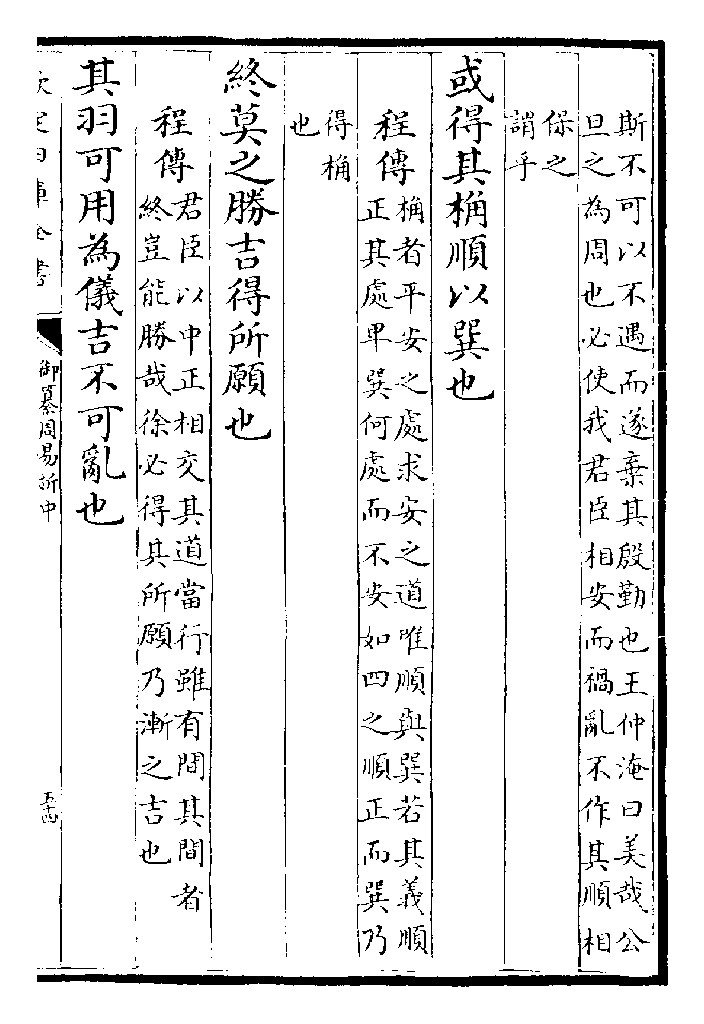 斯不可以不遇而遂棄其殷勤也王仲淹曰美哉公
旦之為周也必使我君臣相安而禍亂不作其順相
保之
謂乎
或得其桷順以巽也
程傳
桷者平安之處求安之道唯順與巽若其義順
正其處卑巽何處而不安如四之順正而巽乃
得桷
也
終莫之勝吉得所願也
程傳
君臣以中正相交其道當行雖有間其間者
終豈能勝哉徐必得其所願乃漸之吉也
其羽可用為儀吉不可亂也
欽定四庫全書
御纂周易折中
五十四